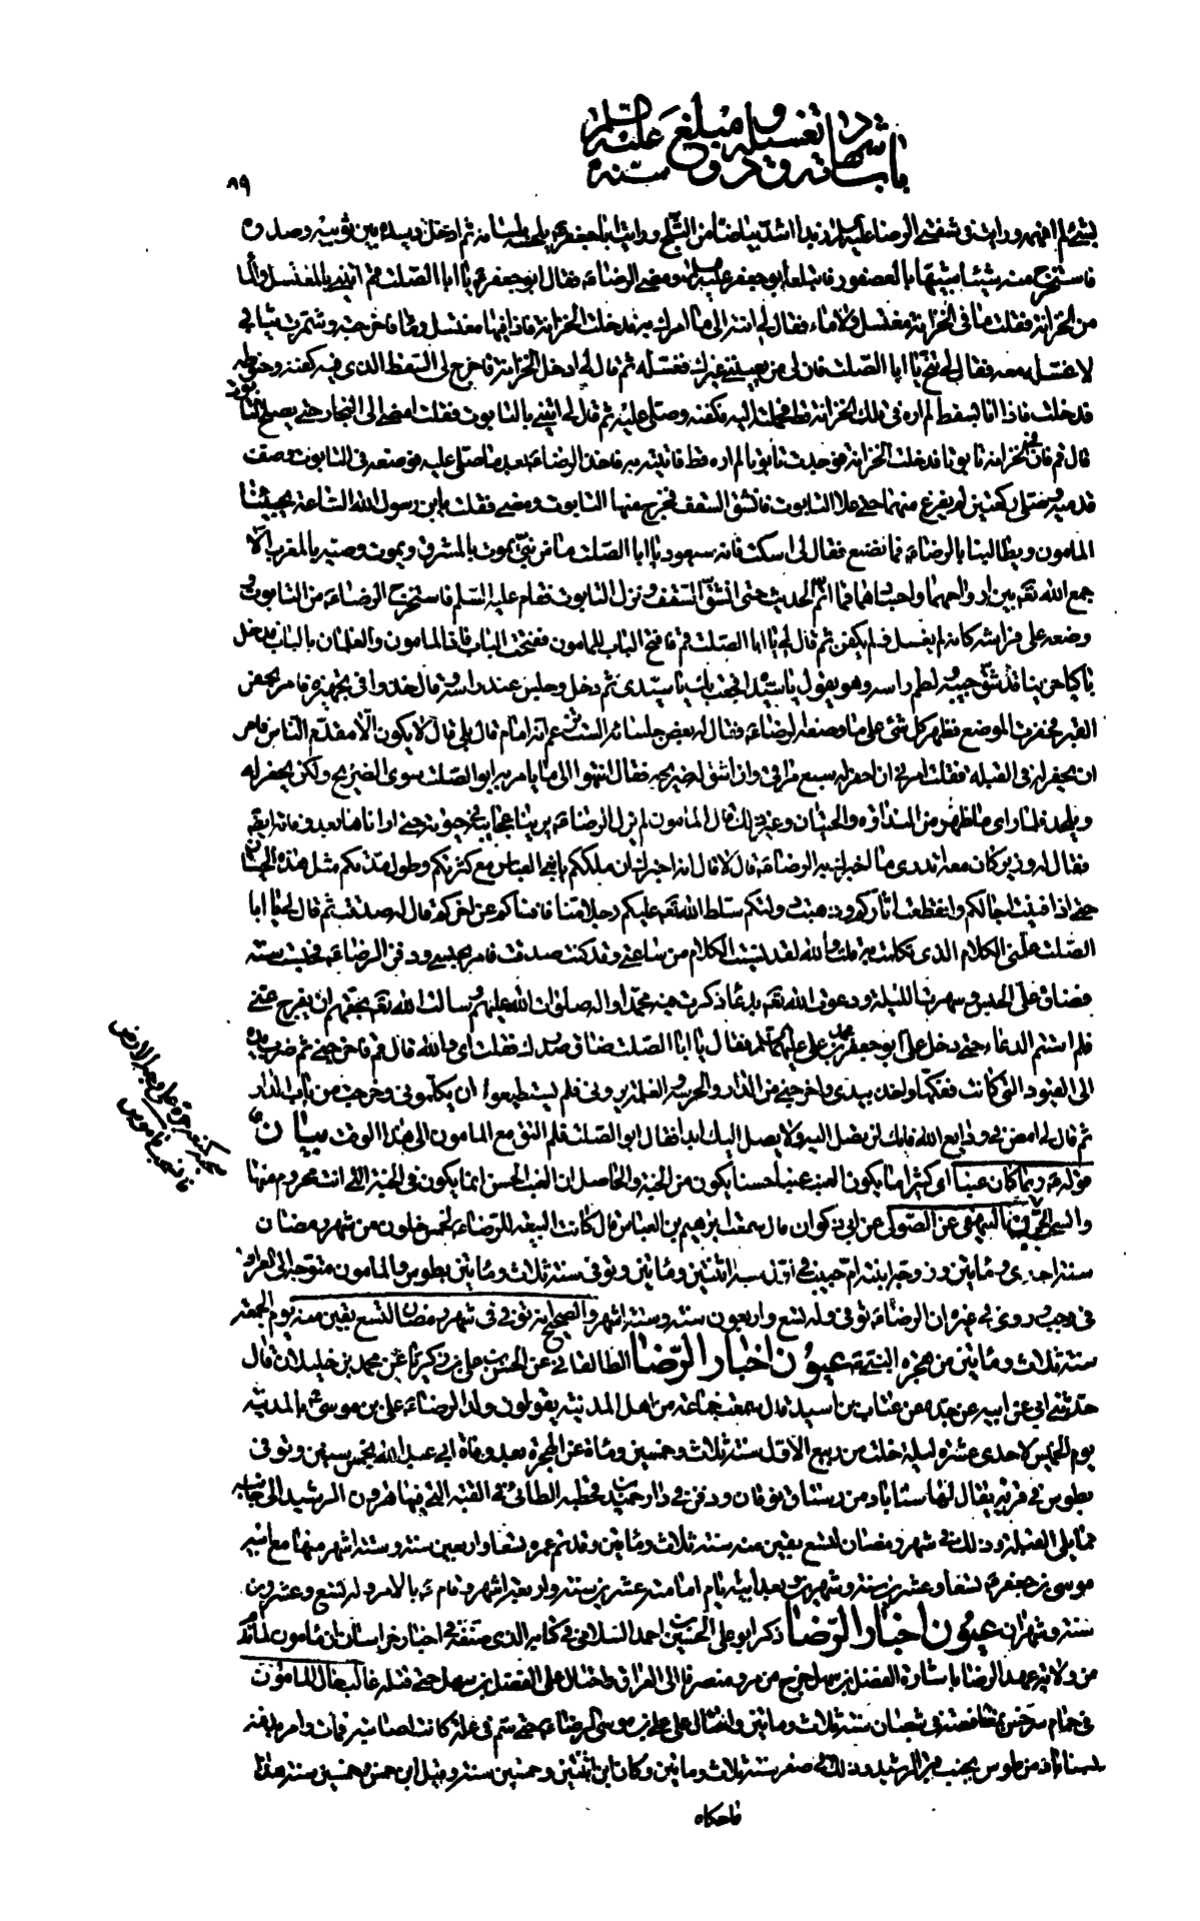 باب شهادته وتغسيله ومبلغ سنه عليه السلام
٨٩
بشئ لم افهمه ورايت فى شفتى الرضا عليه السلم زبدا اشد بياضا من الثلج ورايت ابا جعفر يلحسه بلسانه ثم ادخل يده بين ثوبيه وصدره
فاستخرج منه شيئا شبيها بالعصفور فابتلعه ابو جعفر عليه السلم ومضى الرضا ع فقال ابو جعفر ع يا ابا الصلت قم ائتنى بالمغتسل والماء
من الخزانة فقلت ما فى الخزانة مغتسل ولا ماء فقال لى انته الى ما امرك به فدخلت الخزانة فاذا فيها مغتسل وماء فاخرجته وشمرت ثيابى
لاغتسله معه فقال لى تنح يا ابا الصلت فان لى من يعيننى غيرك فغسله ثم قال لى ادخل الخزانة فاخرج لى السفط الذى فيه كفنه وحنوطه
فدخلت فاذا انا بسفط لم اره فى تلك الخزانة قط فحملته اليه فكفنه وصلى عليه ثم قال لى ائتنى بالتابوت فقلت امضى الى النجار حتى يصلح التابوت
قال قم فان فى الخزانة تابوتا فدخلت الخزانة فوجدت تابوتا لم اره قط فاتيته به فاخذ الرضا ع بعد ما صلى عليه فوضعه فى التابوت وصف
قدميه وصلى ركعتين لم يفرغ منهما حتى علا التابوت فانشق السقف فخرج منها التابوت ومضى فقلت يابن رسول الله الساعة يجيئنا
المامون ويطالبنا بالرضا ع فما نصنع فقال لى اسكت فانه سيعود يا ابا الصلت ما من نبى يموت بالمشرق ويموت وصيه بالمغرب الا
جمع الله تعه بين ارواحهما واجسادهما فما اتم الحديث حتى انشق السقف ونزل التابوت فقام عليه السلم فاستخرج الرضا ع من التابوت
وضعه على فراشه كانه لم يغسل ولم يكفن ثم قال لى يا ابا الصلت قم فافتح الباب للمامون ففتحت الباب فاذا المامون والغلمان بالباب فدخل
باكيا حزينا قد شق جيبه ولطم راسه وهو يقول يا سيداه فجعت بك يا سيدى ثم دخل وجلس عند راسه وقال خذوا فى تجهيزه فامر بحفر
القبر فحفرت الموضع فظهر كل شئ على ما وصفه الرضا ع فقال له بعض جلسائه الست تزعم انه امام قال بلى قال لا يكون الا مقدم الناس فامر
ان يحفر له فى القبلة فقلت امرنى ان احفر له سبع مراقى وان اشق له ضريحه فقال انتهوا الى ما يامر به ابو الصلت سوى الضريح ولكن يحفر له
ويلحد فلما راى ما ظهر من النداوة والحيتان وغير ذلك قال المامون لم يزل الرضا ع يرينا عجائبه فى حيوته حتى اراناها بعد وفاته ايضا
فقال له وزير كان معه اتدرى ما اخبرك به الرضا ع قال لا قال انه اخبرك ان ملككم يا بنى العباس مع كثرتكم وطول مدتكم مثل هذه الحيتان
حتى اذا فنيت اجالكم وانقطعت اثاركم وذهبت دولتكم سلط الله تعه عليكم رجلا منا فافناكم عن اخركم قال له صدقت ثم قال لى يا ابا
الصلت علمنى الكلام الذى تكلمت به قلت والله لقد نسيت الكلام من ساعتى وقد كنت صدقت فامر بحبسى ودفن الرضا ع فحبست سنة
فضاق على الحبس وسهرت الليلة ودعوت الله تعه بدعاء ذكرت فيه محمدا واله صلوات الله عليهم وسالت الله تعه بحقهم ان يفرج عنى
فلم استتم الدعاء حتى دخل على ابو جعفر محمد بن على عليهما السلم فقال يا ابا الصلت ضاق صدرك فقلت اى والله قال قم فاخرجنى ثم ضرب يده
الى القيود التى كانت ففكها واخذ بيدى واخرجنى من الدار والحرسة والغلمة يرونى فلم يستطيعوا ان يكلمونى وخرجت من باب الدار
ثم قال لى امض فى ودايع الله فانك لن تصل اليه ولا يصل اليك ابدا فقال ابو الصلت فلم التق مع المامون الى هذا الوقت بيان
قوله ع ربما كان عنبا اى كثيرا ما يكون العنب عنبا حسنا يكون من الجنة والحاصل ان العنب الحسن انما يكون فى الجنة التى انت محروم منها
البيهقى عن الصولى عن ابى ذكوان قال سمعت ابرهيم بن العباس قال كانت البيعة للرضا ع لخمس خلون من شهر رمضان
سنة احدى ومائتين وزوجه ابنته ام حبيب فى اول سنة اثنتين ومائتين وتوفى سنة ثلاث ومائتين بطوس والمامون متوجه الى العراق
فى رجب وروى لى غيره ان الرضا ع توفى وله تسع واربعون سنة وستة اشهر والصحيح انه توفى فى شهر رمضان لتسع بقين منه يوم الجمعة
سنة ثلاث ومائتين من هجرة النبى ص عيون اخبار الرضا الطالقانى عن الحسن بن على بن زكريا عن محمد بن خليلان قال
حدثنى ابى عن ابيه عن جده عن عتاب بن اسيد قال سمعت جماعة من اهل المدينة يقولون ولد الرضا ع على بن موسى ع بالمدينة
يوم الخميس لاحدى عشرة ليلة خلت من ربيع الاول سنة ثلاث وخمسين ومائة من الهجرة بعد وفاة ابى عبد الله بخمس سنين وتوفى
بطوس فى قرية يقال لها سناباد من رستاق نوقان ودفن فى دار حميد بن قحطبة الطائى فى القبة التى فيها هرون الرشيد الى جانبه
مما يلى القبلة وذلك فى شهر رمضان لتسع بقين منه سنة ثلاث ومائتين وقد تم عمره تسعا واربعين سنة وستة اشهر منها مع ابيه
موسى بن جعفر ع تسعا وعشرين سنة وشهرين وبعد ابيه ايام امامته عشرين سنة واربعة اشهر وقام ع بالامر وله تسع وعشرون
سنة وشهران عيون اخبار الرضا ذكر ابو على الحسين بن احمد السلامى فى كتابه الذى صنفه فى اخبار خراسان ان المامون لما ندم
من ولاية عهد الرضا باشارة الفضل بن سهل خرج من مرو منصرفا الى العراق واحتال على الفضل بن سهل حتى قتله غالب خال المامون
فى حمام سرخس مغافصة فى شعبان سنة ثلاث ومائتين واحتال على على بن موسى الرضا ع حتى سم فى علة كانت اصابته فمات وامر بدفنه
بسناباد من طوس بجنب قبر الرشيد وذلك فى صفر سنة ثلاث ومائتين وكان ابن اثنتين وخمسين سنة وقيل ابن خمس وخمسين سنة هذا
ماحكاه